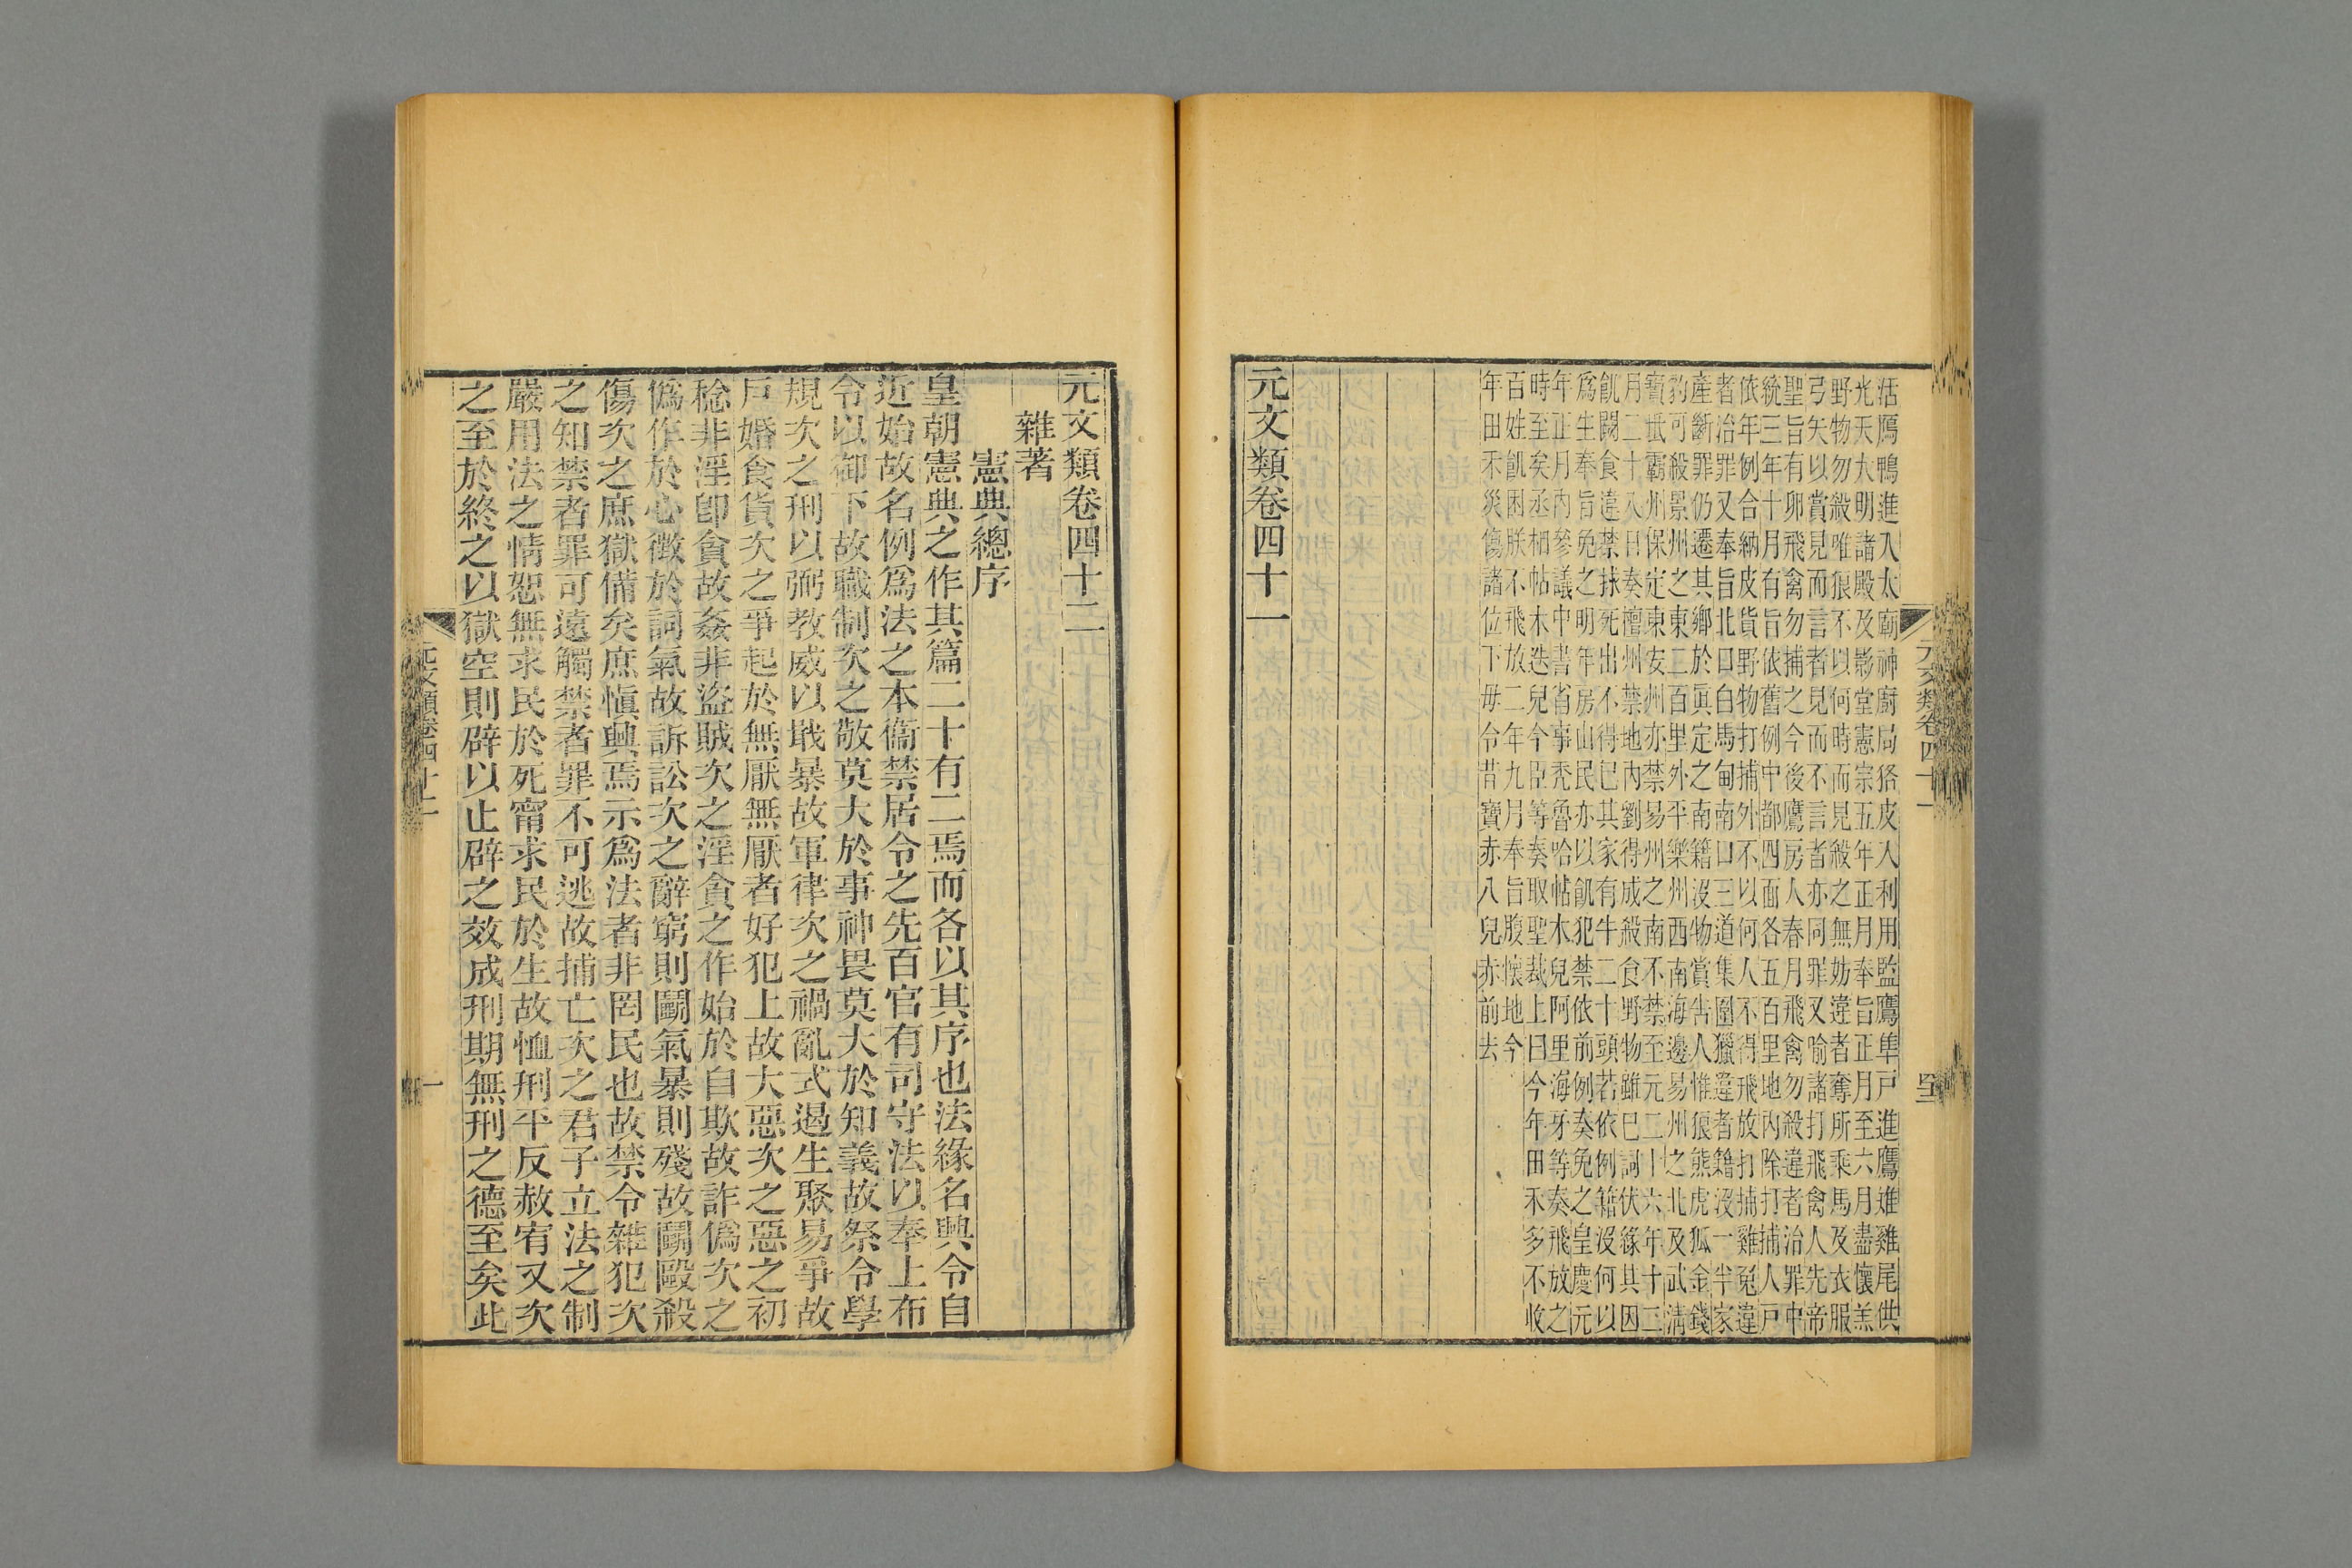 活鴈鴨進入太廟神廚局狢皮入利用監鷹隼戸進鷹雉雞尾供
光天太明諸殿及影堂憲宗五年正月奉旨正月至六月盡懷羔
野物勿殺唯狼不以何時而見殺之無妨違者奪所乘馬及衣服
弓矢以賞見而言者見而不言者亦同罪又喻諸打飛禽人先帝
聖旨有卵飛禽勿捕之今後鷹房人春月飛禽勿殺違者治罪中
統三年十月有旨依舊例中都四面各五百里地內除打捕人戸
依年例合納皮貨野物打捕外不以何人不得飛放打捕雞兔違
者治罪又奉旨北口白馬甸南口三道集圍獵違者籍沒一半家
產斷罪仍遷其鄉於眞定之南籍沒物賞告人惟狼熊虎狐金錢
豹可殺景州之東二百里外平欒州西南海邊易州之北及武淸
寶坻霸州保定東安州亦禁易州之南不禁至元二十六年十二
月二十八日奏檀州禁地內劉得成殺食野物雖巳詞伏緣其因
飢闕食違禁捄死出不得巳其家有牛二十頭若依例籍沒何以
爲生奉旨免之明年房山民亦以飢犯禁依前例奏免之皇慶元
年正月內參議中書省事禿魯哈帖木兒阿里海牙等奏飛放之
時至矣丞相帖木迭兒今臣等奏取聖裁上曰今年田禾多不收
百姓飢困朕不飛放二年九月奉旨腹懷地今
年田禾災傷諸位下毋令昔寶赤八兒赤前去
元文類卷四十一
元文類卷四十二
雜著
憲典總序
皇朝憲典之作其篇二十有二焉而各以其序也法緣名興令自
近始故名例爲法之本衞禁居令之先百官有司守法以奉上布
令以御下故職制次之敬莫大於事神畏莫大於知義故祭令學
規次之刑以弼教威以戢暴故軍律次之禍亂式遏生聚易爭故
戸婚食貨次之爭起於無厭無厭者好犯上故大惡次之惡之初
稔非淫卽貪故姦非盜賊次之淫貪之作始於自欺故詐僞次之
僞作於心徵於詞氣故訴訟次之辭窮則鬭氣暴則殘故鬭毆殺
傷次之庶獄備矣庶愼興焉示爲法者非罔民也故禁令雜犯次
之知禁者罪可遠觸禁者罪不可逃故捕亡次之君子立法之制
嚴用法之情恕無求民於死甯求民於生故恤刑平反赦宥又次
之至於終之以獄空則辟以止辟之效成刑期無刑之德至矣此